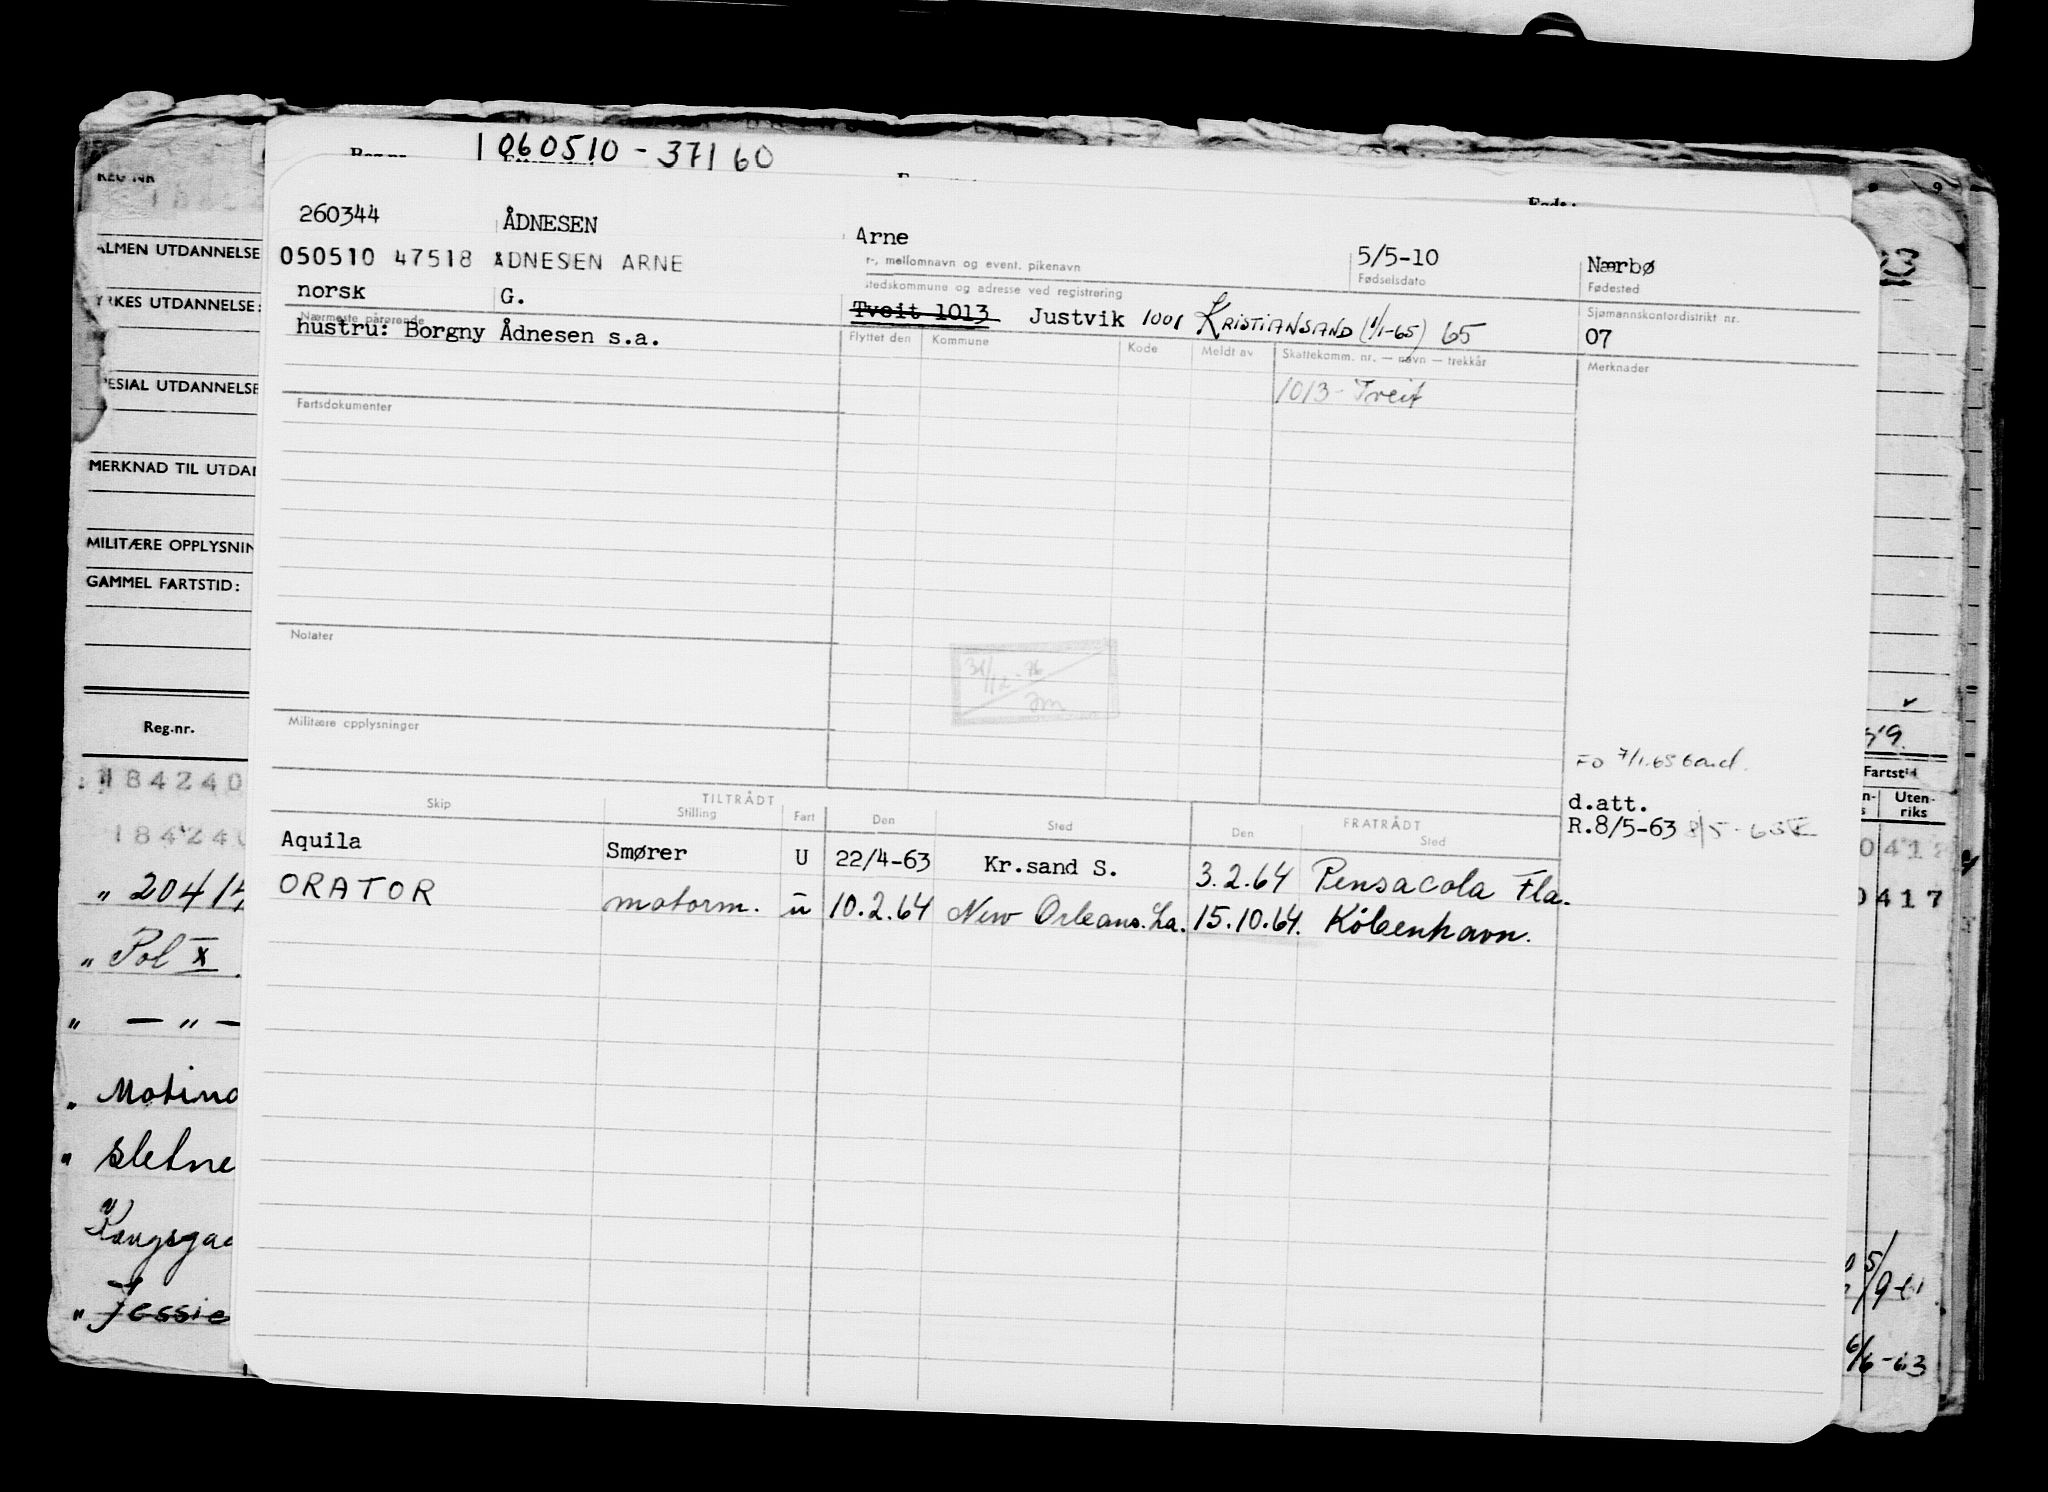 1 060510 - 371 60
REG NR
260344 ÅDNESEN Arne 5/5-10 Nærbø
050510 47518 ÅDNESEN ARNE
r-, mellomnavn og event. pikenavn Fødselsdato Fødested
norsk G.
stedskommune og adresse ved registrering Sjømannskontordistrikt nr.
Tveit 1013 Justvik 1001 KRISTIANSAND (1/1-65) 65 07
Nærmeste pårørende
hustru: Borgny Ådnesen s.a.
Flyttet den Kommune Kode Meldt av Skattekomm. nr. — navn — trekkår Merknader
1013 - Tveit
Fartsdokumenter
Notater
31/12-76
Militære opplysninger
FO 7/1.65
d.att.
R.8/5-63
TILTRÅDT FRATRÅDT
Skip Stilling Fart Den Sted Den Sted
Aquila Smører U 22/4-63 Kr.sand S. 3.2.64 Pensacola Fla.
ORATOR motorm. u 10.2.64 New Orleans. La. 15.10.64. København.
ALMEN UTDANNELSE
YRKES UTDANNELSE:
SPESIAL UTDANNELSE
MERKNAD TIL UTDAN
MILITÆRE OPPLYSNIN
GAMMEL FARTSTID:
Reg.nr.
184240
18424
" 20414
" Pol X
" — " —
" Motina
" Sletne
Kongsga
" Jessie
Fartstid
Uten-
riks
0412
0417
5/9-61
6/6-63